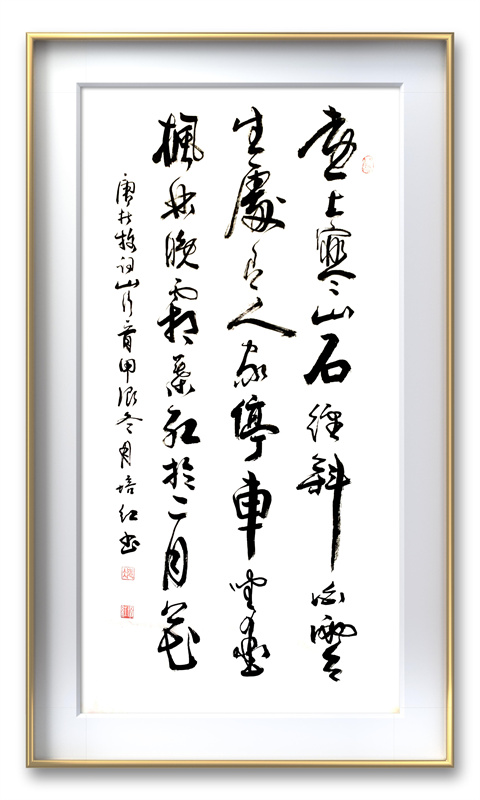 遠上寒山石徑斜白雲
生處有人家停車坐愛
楓林晚霜葉紅於二月花
唐杜牧詞山行首甲辰冬月培紅書